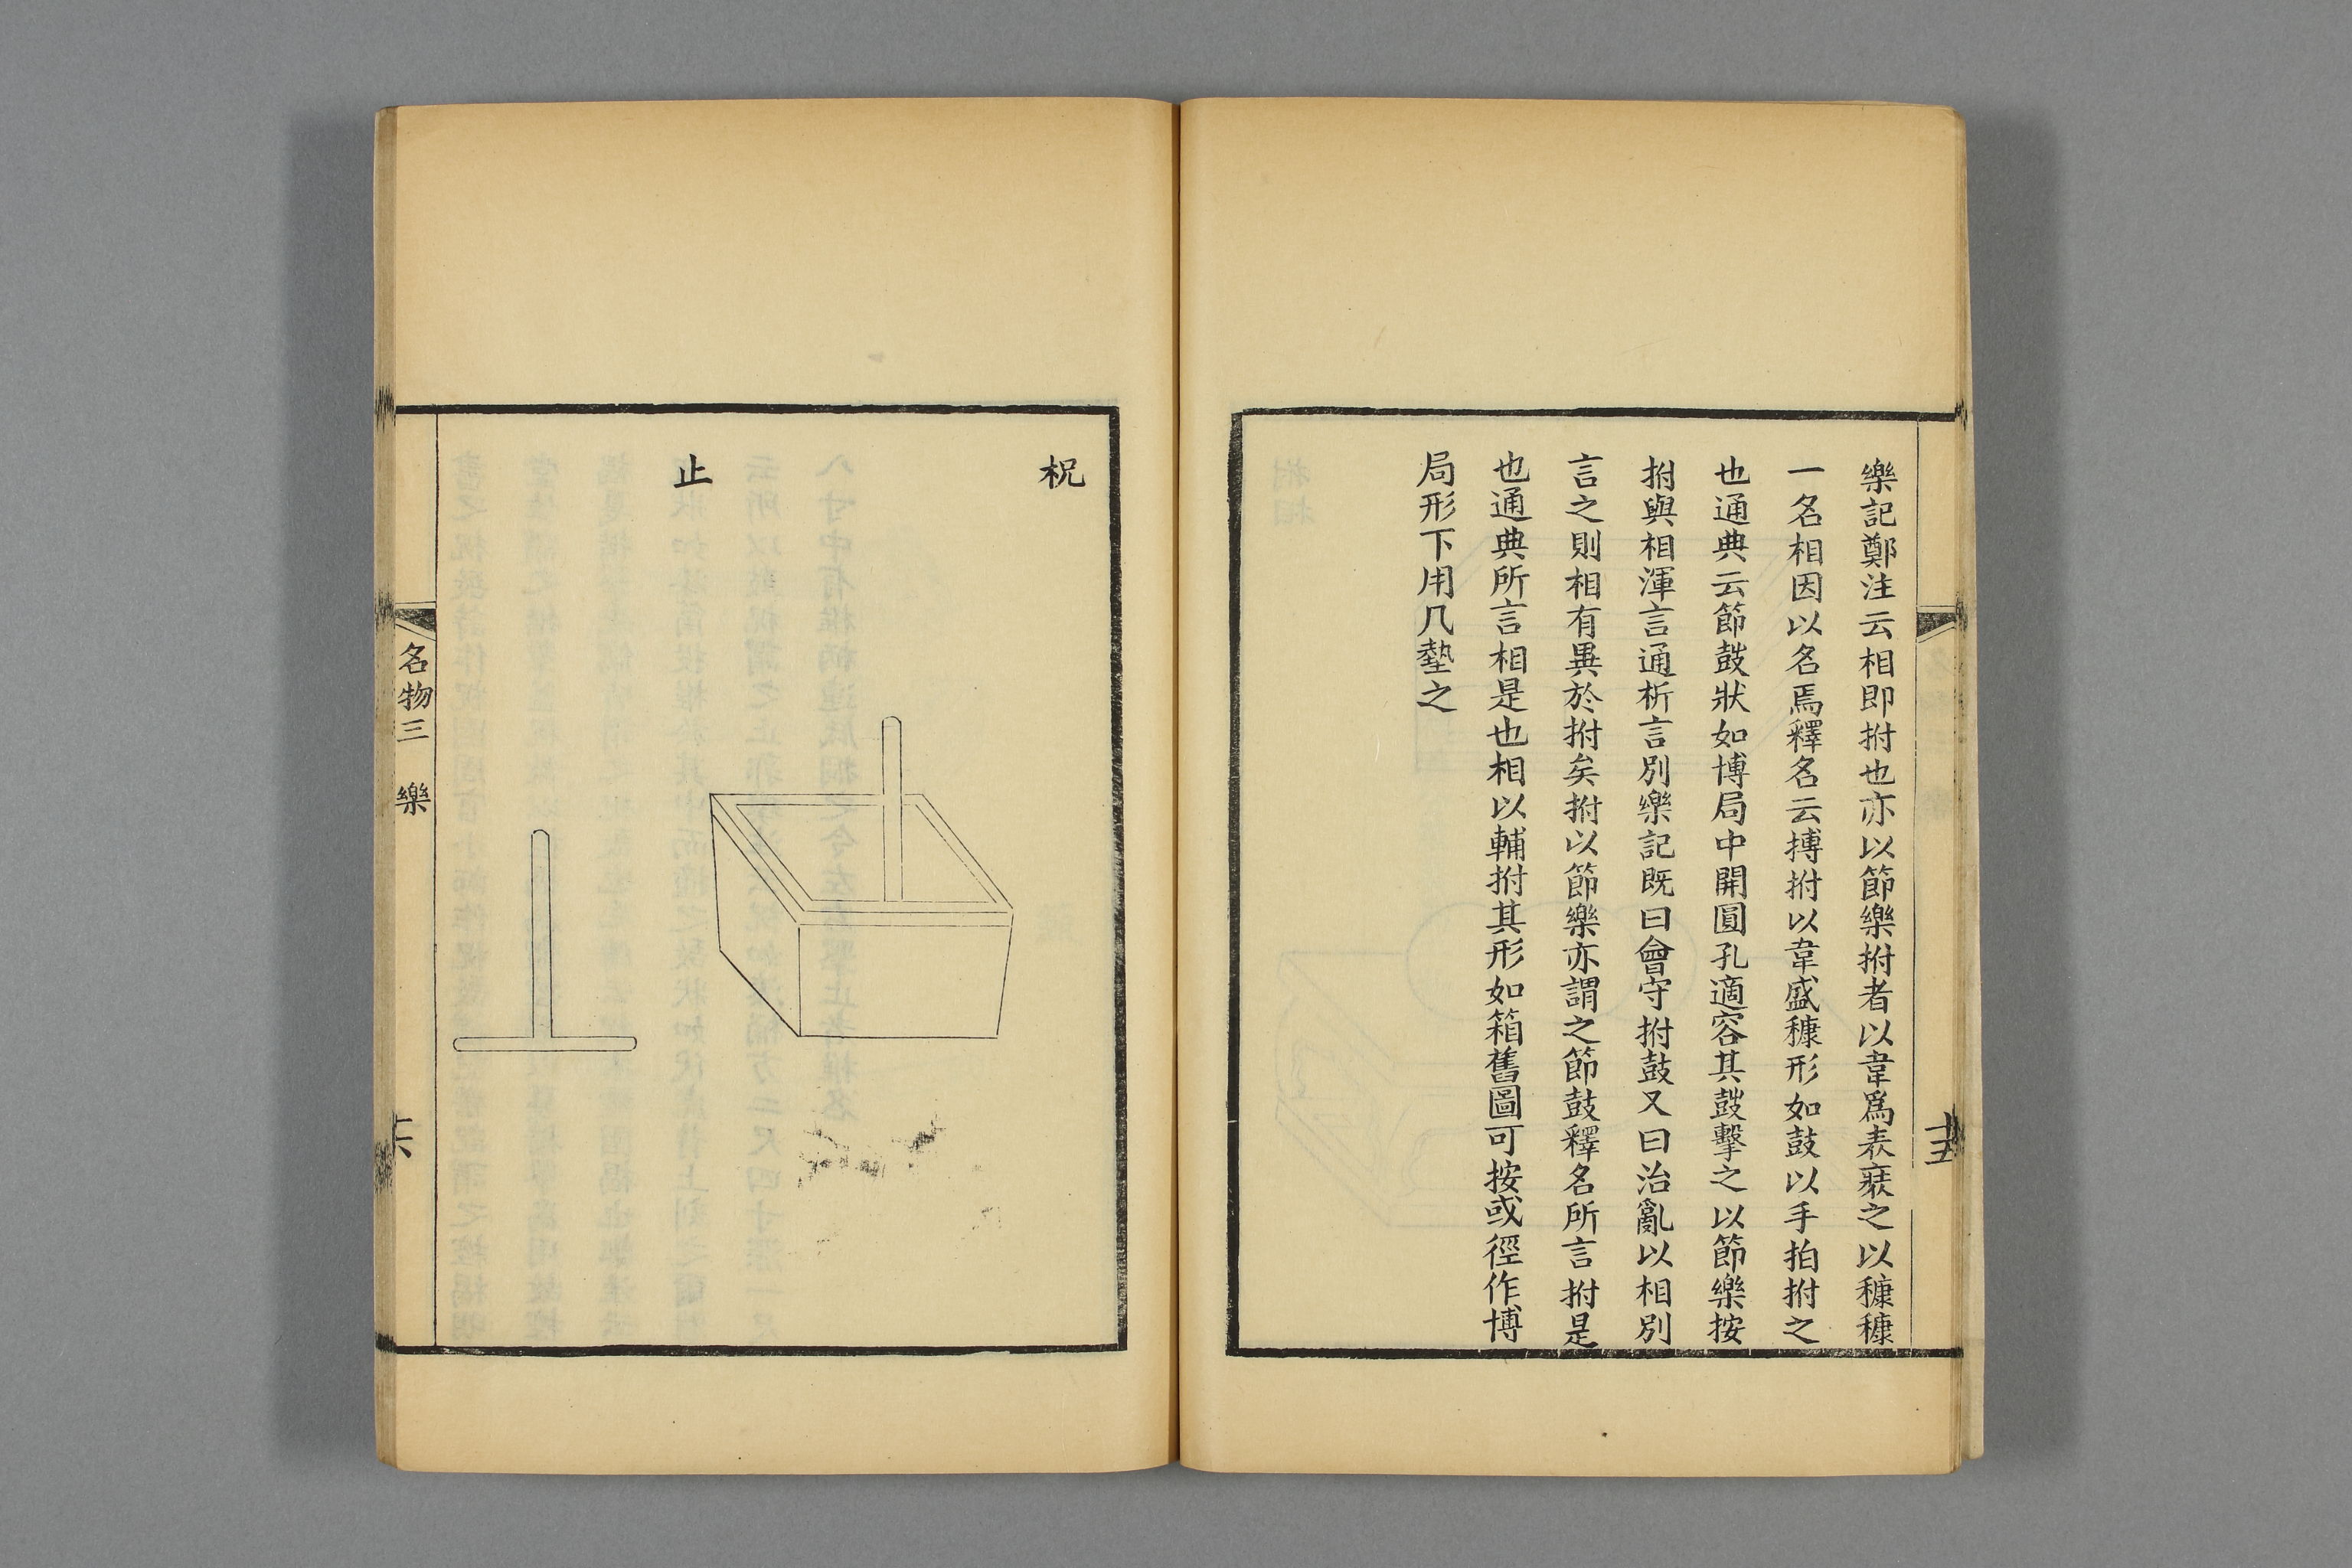 樂記鄭注云相即拊也亦以節樂拊者以韋爲表裝之以穅穅
一名相因以名焉釋名云搏拊以韋盛穅形如鼓以手拍拊之
也通典云節鼓狀如博局中開圓孔適容其鼓擊之以節樂按
拊與相渾言通析言別樂記既曰會守拊鼓又曰治亂以相別
言之則相有異於拊矣拊以節樂亦謂之節鼓釋名所言拊是
也通典所言相是也相以輔拊其形如箱舊圖可按或徑作博
局形下用几墊之
十五
柷
止
名物三 樂
十六